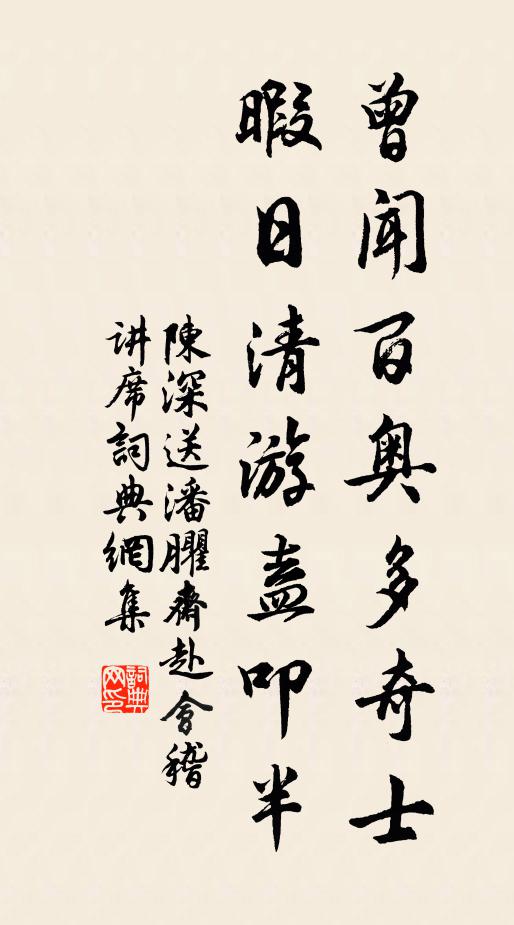 曾闻百奥多奇士
暇日清游盍叩半
陳深送潘臞齋赴會稽
讲席詞典網集
詞典网印